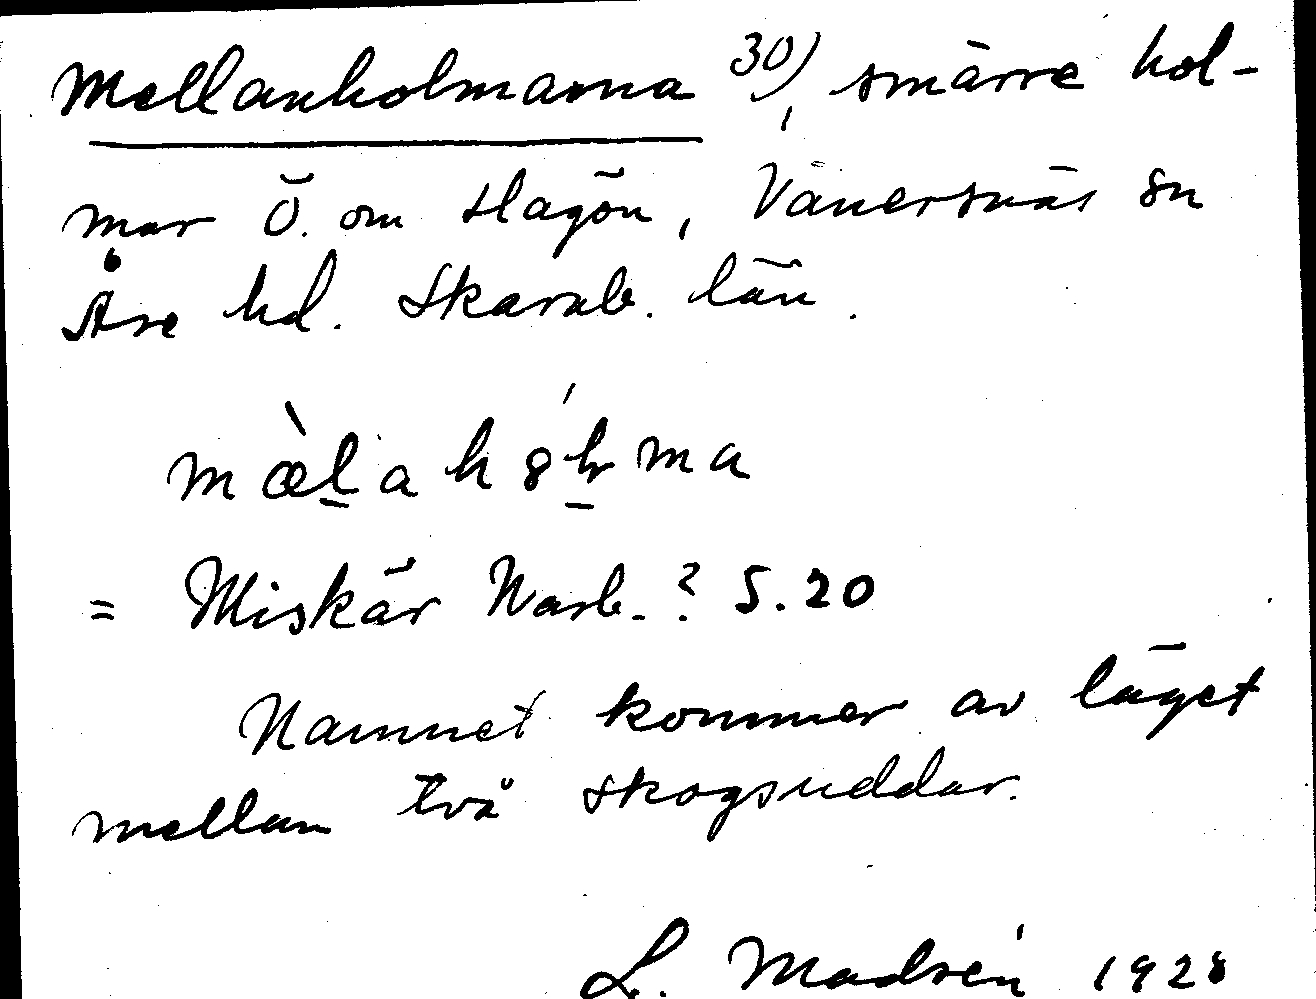 Mellanholmarna 30), smärre hol-
mar Ö. om Hagön, Vänersnäs sn
Åse hd. Skarab. län.
mæ̀l̠a h8́l̠ma
= Miskär Warb.? S. 20
Namnet kommer av läget
mellan två skogsuddar.
L. Madsén 1928